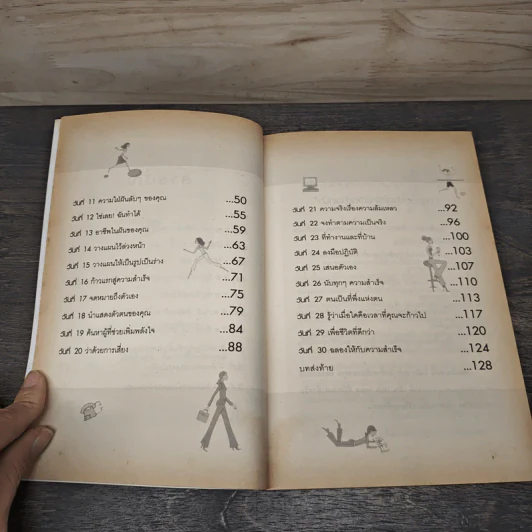 วันที่ 11 ความใฝ่ฝันลับๆ ของคุณ ...50
วันที่ 12 ใช่เลย! ฉันทำได้ ...55
วันที่ 13 อาชีพในฝันของคุณ ...59
วันที่ 14 วางแผนไว้ล่วงหน้า ...63
วันที่ 15 วางแผนให้เป็นรูปเป็นร่าง ...67
วันที่ 16 ก้าวแรกสู่ความสำเร็จ ...71
วันที่ 17 จดหมายถึงตัวเอง ...75
วันที่ 18 นำแสดงตัวตนของคุณ ...79
วันที่ 19 ค้นหาผู้ที่ช่วยเพิ่มพลังใจ ...84
วันที่ 20 ว่าด้วยการเสี่ยง ...88
วันที่ 21 ความจริงเรื่องความล้มเหลว ...92
วันที่ 22 จงทำตามความเป็นจริง ...96
วันที่ 23 ที่ทำงานและที่บ้าน ...100
วันที่ 24 ลงมือปฏิบัติ ...103
วันที่ 25 เสนอตัวเอง ...107
วันที่ 26 นับทุกๆ ความสำเร็จ ...110
วันที่ 27 ตนเป็นที่พึ่งแห่งตน ...113
วันที่ 28 รู้ว่าเมื่อใดคือเวลาที่คุณจะก้าวไป ...117
วันที่ 29 เพื่อชีวิตที่ดีกว่า ...120
วันที่ 30 ฉลองให้กับความสำเร็จ ...124
บทส่งท้าย ...128